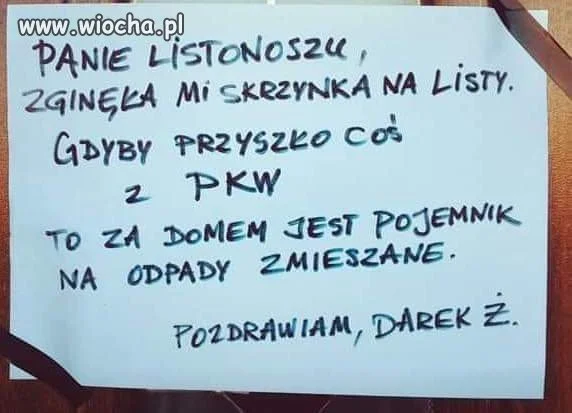 www.wiocha.pl
PANIE LISTONOSZU,
ZGINĘŁA MI SKRZYNKA NA LISTY.
GDYBY PRZYSZŁO COŚ
Z PKW
TO ZA DOMEM JEST POJEMNIK
NA ODPADY ZMIESZANE.
POZDRAWIAM, DAREK Ż.